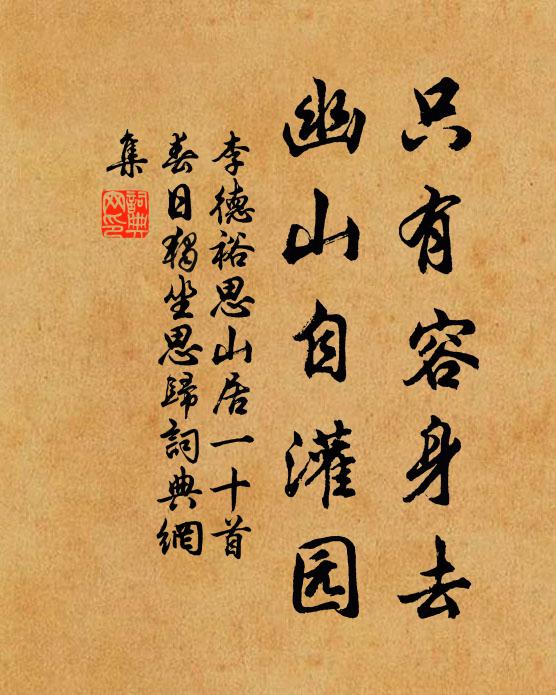 只有容身去
幽山自灌园
李德裕思山居一十首
春日独坐思歸詞典網
集
詞典
网印